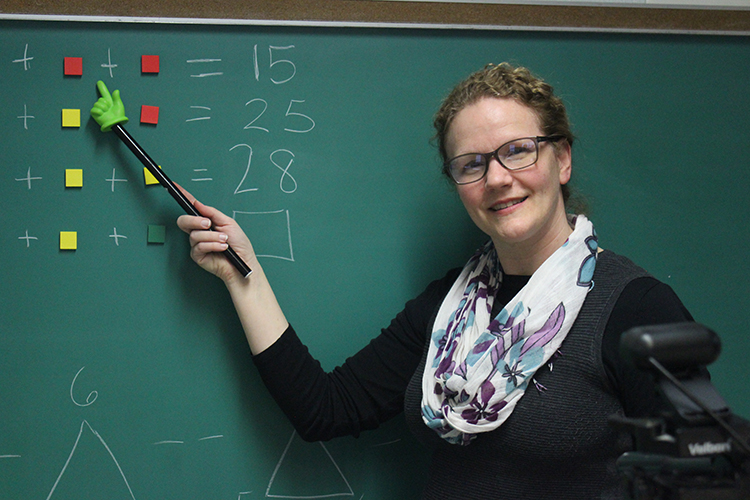 + + = 15
+ = 25
+ + = 28
+ +
6
Velbon